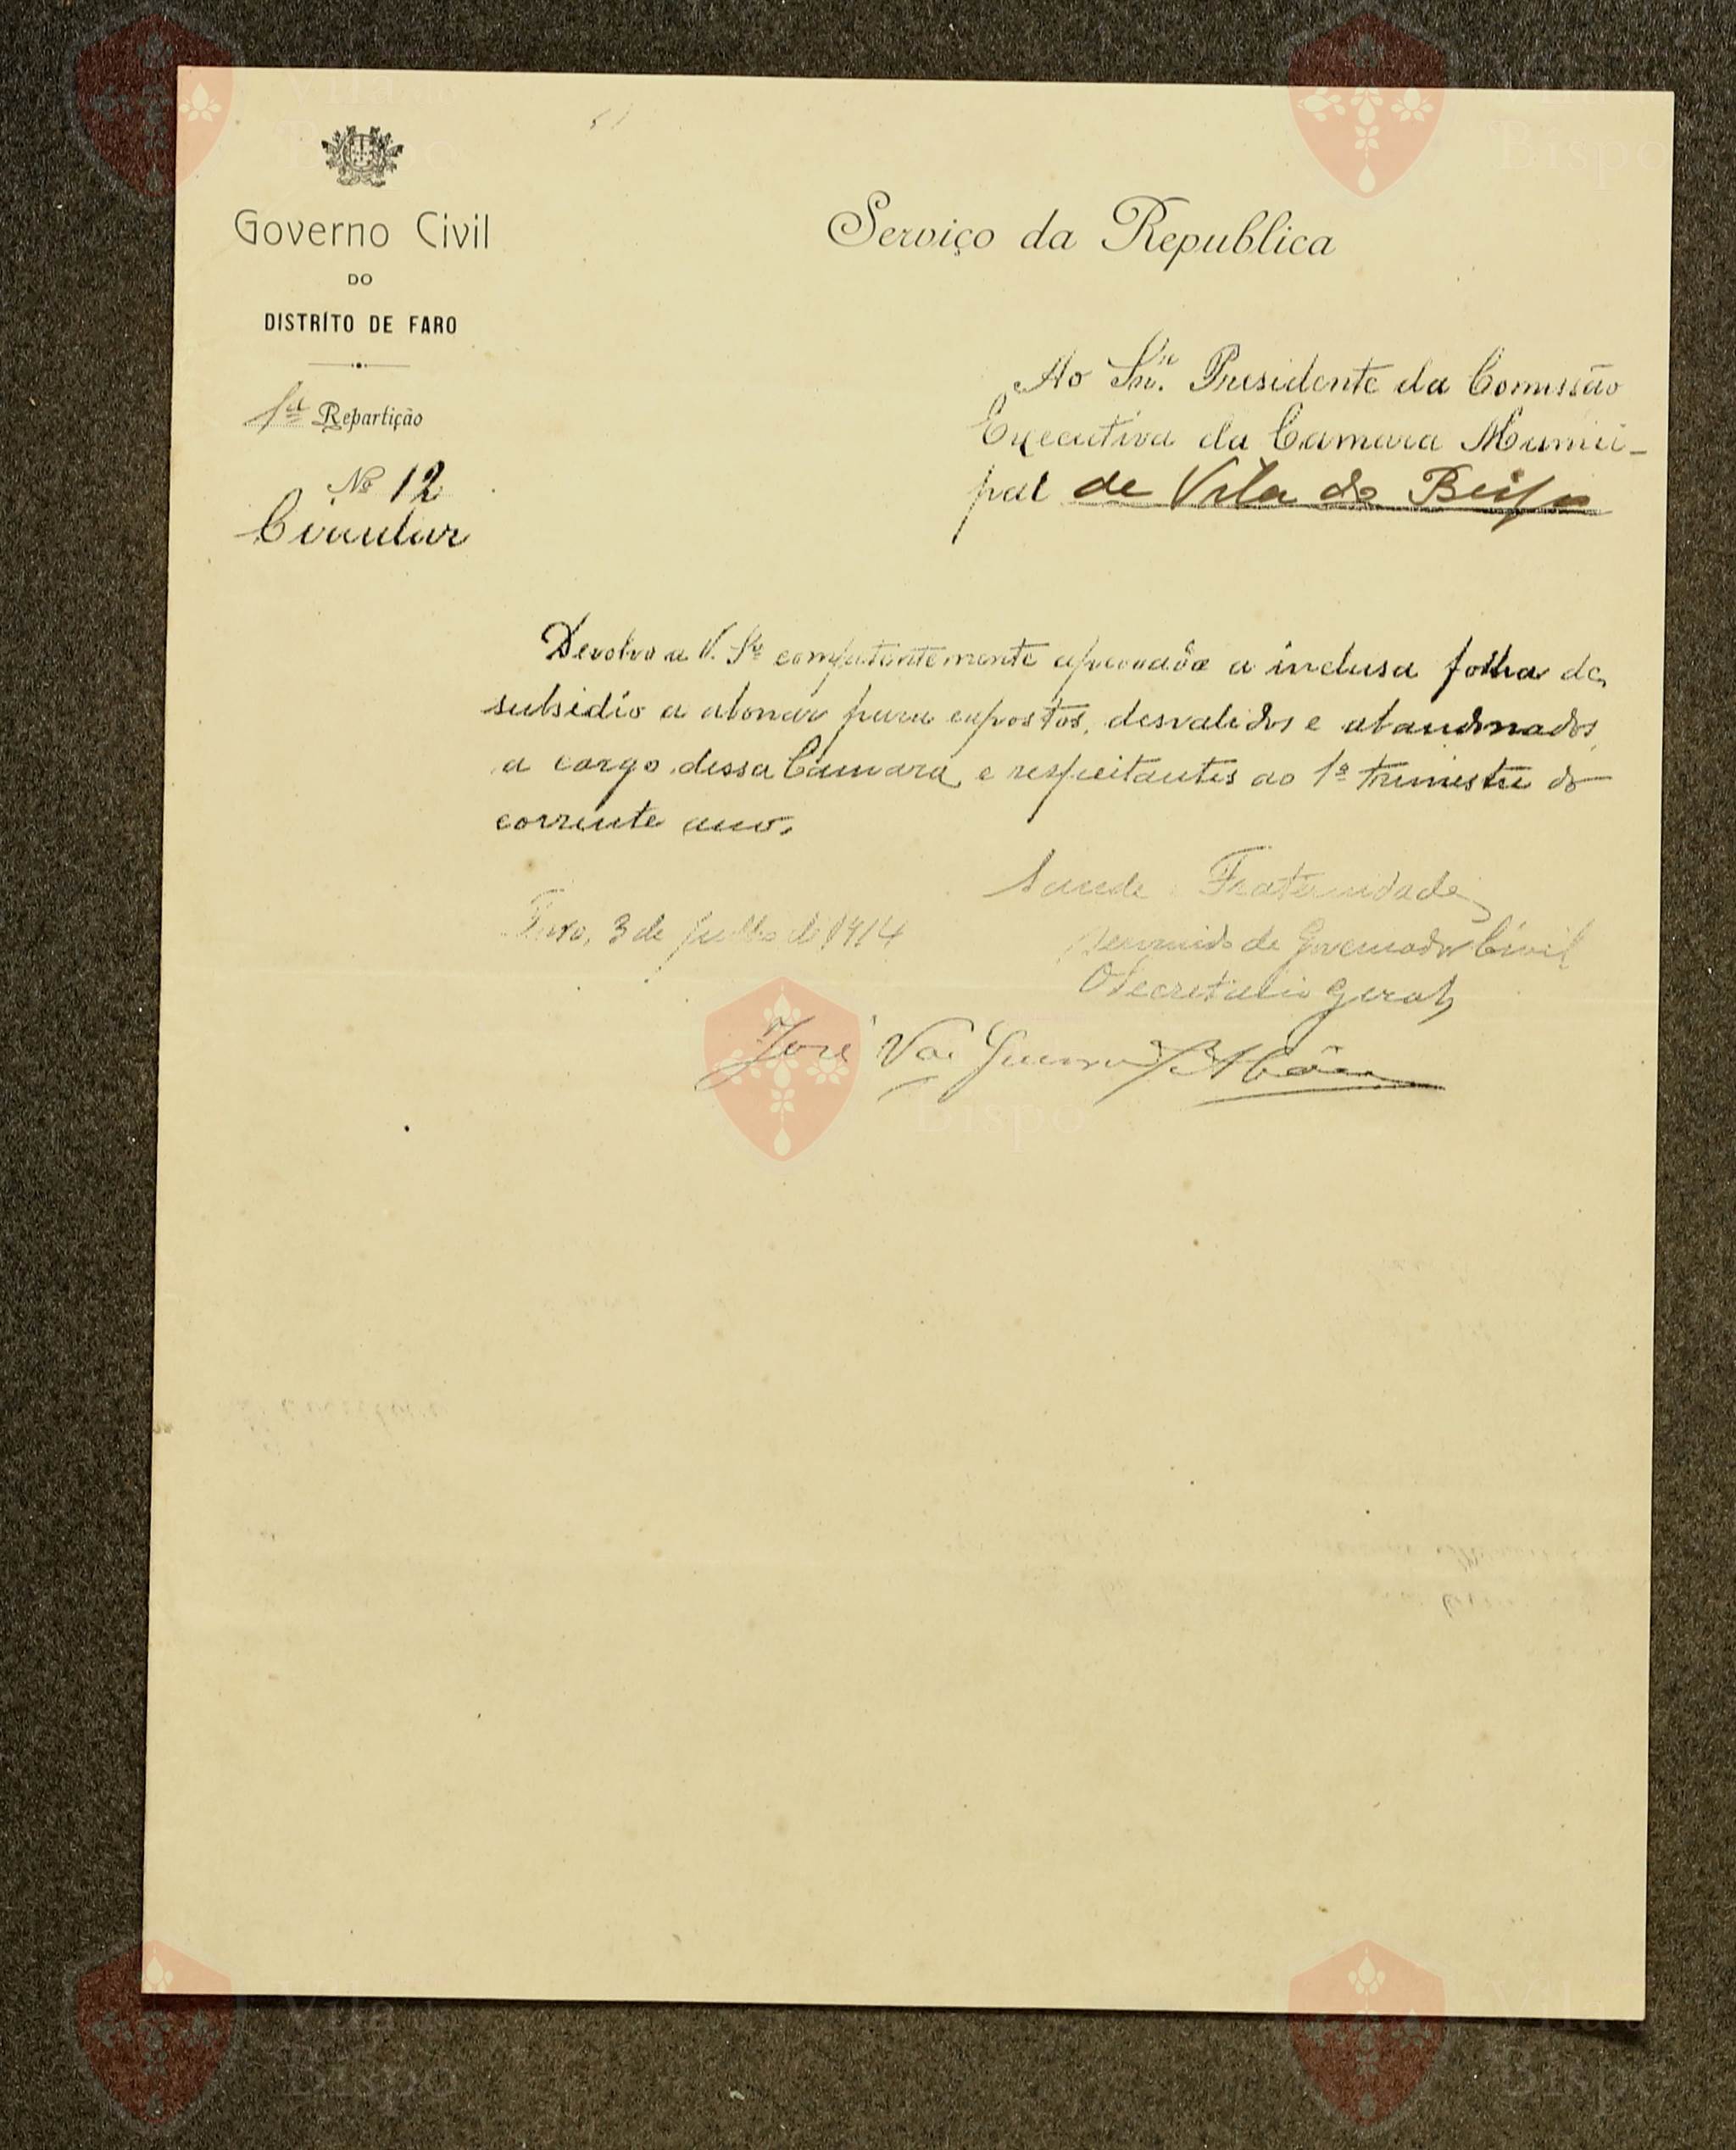 Governo Civil
DO
DISTRÍTO DE FARO
1ª Repartição
Nº 12
Circular
Serviço da Republica
Ao Snr. Presidente da Comissão
Executiva da Camara Munici-
pal de Vila do Bispo
Devolvo a V. Sª competentemente aprovada a inclusa folha de
subsidio a abonar para expostos, desvalidos e abandonados
a cargo dessa Camara, e respeitantes ao 1º trimestre do
corrente ano.
Saude e Fraternidade
Faro, 3 de Julho de 1914
de Governador Civil
O Secretario Geral
José Vaz Guerreiro
Vila do
Bispo